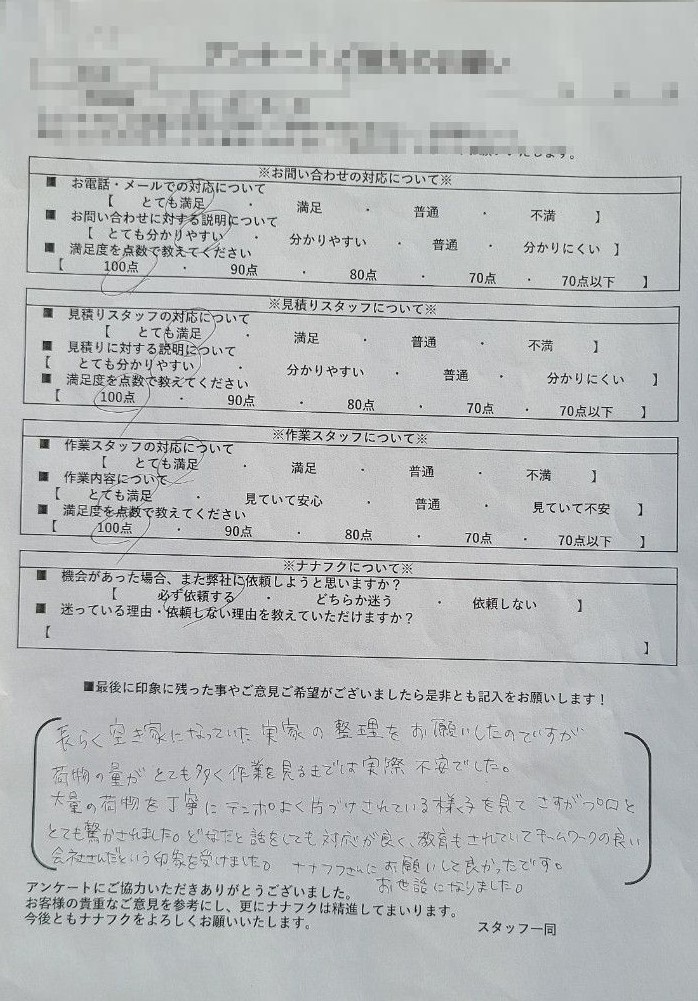 ※お問い合わせの対応について※
■ お電話・メールでの対応について
【 とても満足 ・ 満足 ・ 普通 ・ 不満 】
■ お問い合わせに対する説明について
【 とても分かりやすい ・ 分かりやすい ・ 普通 ・ 分かりにくい 】
■ 満足度を点数で教えてください
【 100点 ・ 90点 ・ 80点 ・ 70点 ・ 70点以下 】
※見積りスタッフについて※
■ 見積りスタッフの対応について
【 とても満足 ・ 満足 ・ 普通 ・ 不満 】
■ 見積りに対する説明について
【 とても分かりやすい ・ 分かりやすい ・ 普通 ・ 分かりにくい 】
■ 満足度を点数で教えてください
【 100点 ・ 90点 ・ 80点 ・ 70点 ・ 70点以下 】
※作業スタッフについて※
■ 作業スタッフの対応について
【 とても満足 ・ 満足 ・ 普通 ・ 不満 】
■ 作業内容について
【 とても満足 ・ 見ていて安心 ・ 普通 ・ 見ていて不安 】
■ 満足度を点数で教えてください
【 100点 ・ 90点 ・ 80点 ・ 70点 ・ 70点以下 】
※ナナフクについて※
■ 機会があった場合、また弊社に依頼しようと思いますか？
【 必ず依頼する ・ どちらか迷う ・ 依頼しない 】
■ 迷っている理由・依頼しない理由を教えていただけますか？
【 】
■最後に印象に残った事やご意見ご希望がございましたら是非とも記入をお願いします！
長らく空き家になっていた実家の整理をお願いしたのですが
荷物の量がとても多く作業を見るまでは実際不安でした。
大量の荷物を丁寧にテンポよく片づけされている様子を見てさすがプロと
とても驚かされました。どなたと話をしても対応が良く、教育もされていてチームワークの良い
会社さんだという印象を受けました。ナナフクさんにお願いして良かったです。
お世話になりました。
アンケートにご協力いただきありがとうございました。
お客様の貴重なご意見を参考にし、更にナナフクは精進してまいります。
今後ともナナフクをよろしくお願いいたします。 スタッフ一同